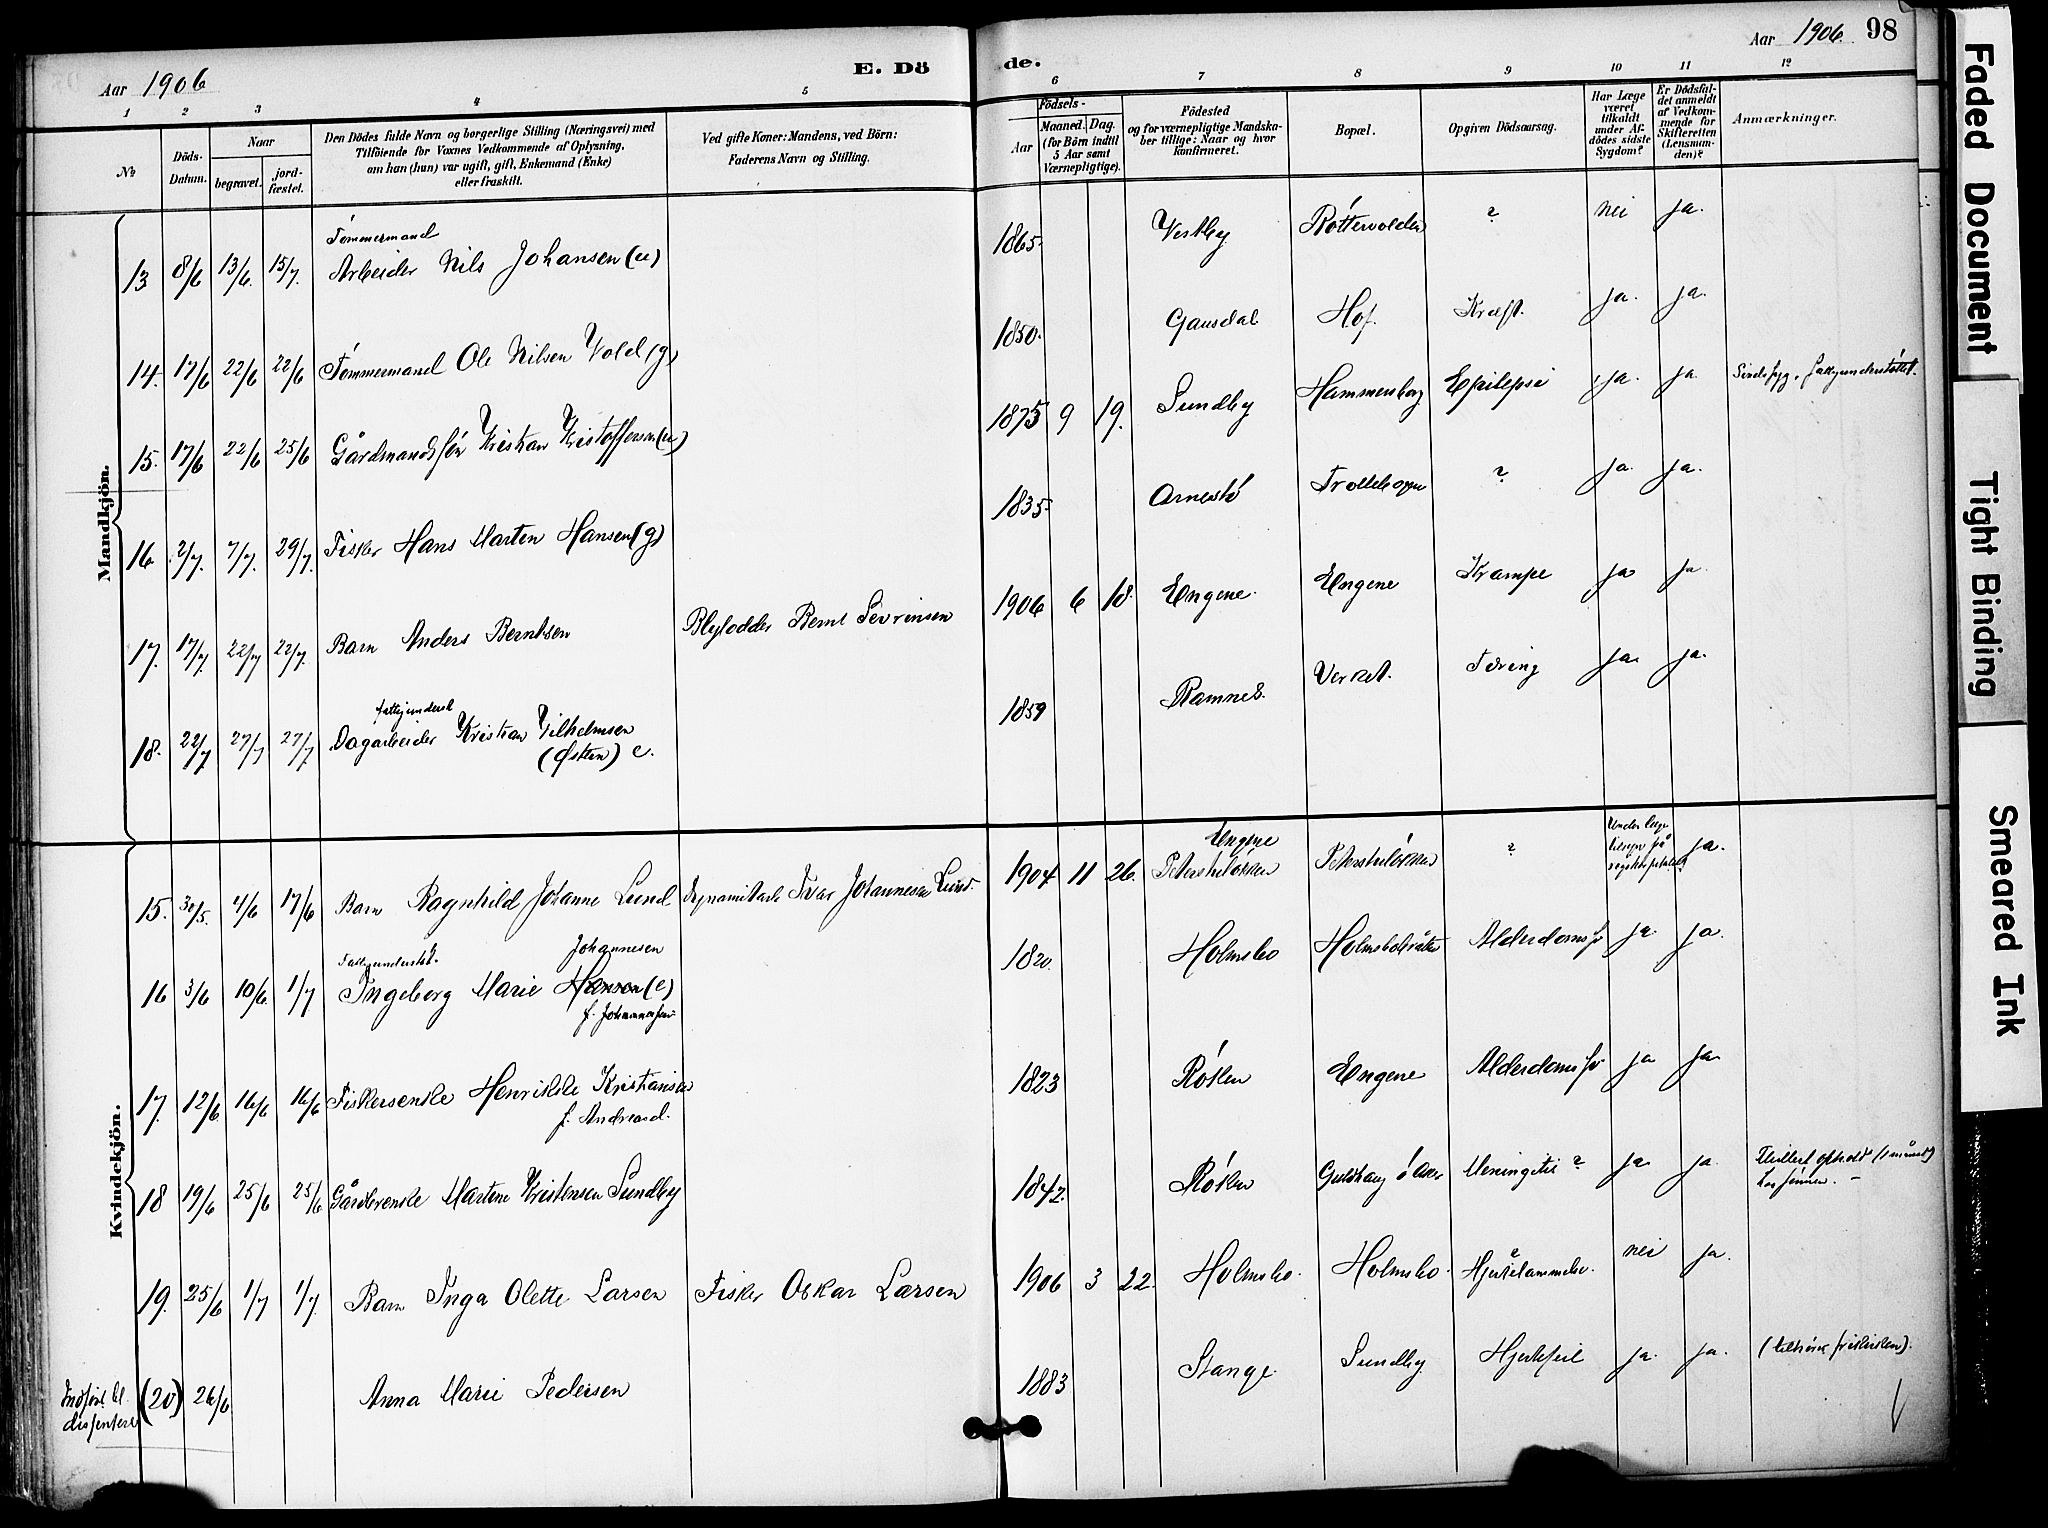 Aar 1906
E. Dö
de.
Aar 1906. 98
1 2 3 4 5 6 7 8 9 10 11 12
No
Döds-Datum.
Naar
begravet.
jord-fæstet.
Den Dödes fulde Navn og borgerlige Stilling (Næringsvei) med
Tilföiende for Voxnes Vedkommende af Oplysning,
om han (hun) var ugift, gift, Enkemand (Enke)
eller fraskilt.
Ved gifte Koner: Mandens, ved Börn:
Faderens Navn og Stilling.
Födsels-
Aar
Maaned. Dag.
(for Börn indtil
5 Aar samt
Værnepligtige).
Födested
og for værnepligtige Mandska-
ber tillige: Naar og hvor
konfirmeret.
Bopæl.
Opgiven Dödsaarsag.
Har Læge
været
tilkaldt
under Af-
dödes sidste
Sygdom?
Er Dödsfal-
det anmeldt
af Vedkom-
mende for
Skifteretten
(Lensman-
den)?
Anmærkninger.
Mandkjön.
Tømmermand
13 8/6 13/6. 15/7. Arbeider Nils Johansen (u) 1865. Vestby Røttevolden ? nei ja.
14. 17/6 22/6 22/6 Tømmermand Ole Nilsen Vold (g) 1850. Gausdal Hof. Kræft. ja. ja.
15. 17/6 22/6 25/6 Gårdmandssøn Kristian Kristoffersen (u) 1875 9 19. Sundby Hammersborg Epilepsi ja. ja Sindssyg, fattigunderstøttet.
16 2/7. 7/7. 29/7. Fisker Hans Marten Hansen (g) 1835. Arnestø ? ja. ja.
17. 17/7 22/7 22/7. Barn Anders Berntsen Blylodder Bernt Sevrinsen 1906 6 18. Engene. Engene Krampe ja ja.
fattigunderst
18. 22/7 27/7 27/7 Dagarbeider Kristian Vilhelmsen 1859 Ramnes. Verket. Tæring ja. ja.
(Østten) e.
Kvindekjön.
15. 30/5. 4/6 17/6 Barn Ragnhild Johanne Lund Dynamitarb Ivar Johannesen Lund. 1904 11 26. Engene Petersheløkken Petersheløkken ? Under læge ja.
Fattigunderstøt. Johannesen
16 3/6 10/6. 1/7 Ingeborg Marie Hanson (e) 1820. Holmsbo Alderdomssv ja. ja.
f. Johannesen
17. 12/6. 16/6 16/6 Fiskerenke Henrikke Kristiansen 1823 Røken Engene Alderdomssv ja ja.
f. Andreasd.
18 19/6 25/6 25/6 Gårdbrenke Martine Kristensen Sundby 1842. Røken Guldhaug i Asker Meningitis? ja. ja. Tilfældigt ophold (1 måned)
hos sønnen. —
19. 25/6 1/7 1/7. Barn Inga Olette Larsen Fisker Oskar Larsen 1906 3 22. Holmsbo. Holmsbo. Hjertelammelse. nei ja.
Indført bl.
dissentere (20) 26/6 Anna Marie Pedersen 1883 Stange Sundby Hjertefeil ja. ja. (tilhører frikirken).
Faded Document
Tight Binding
Smeared Ink